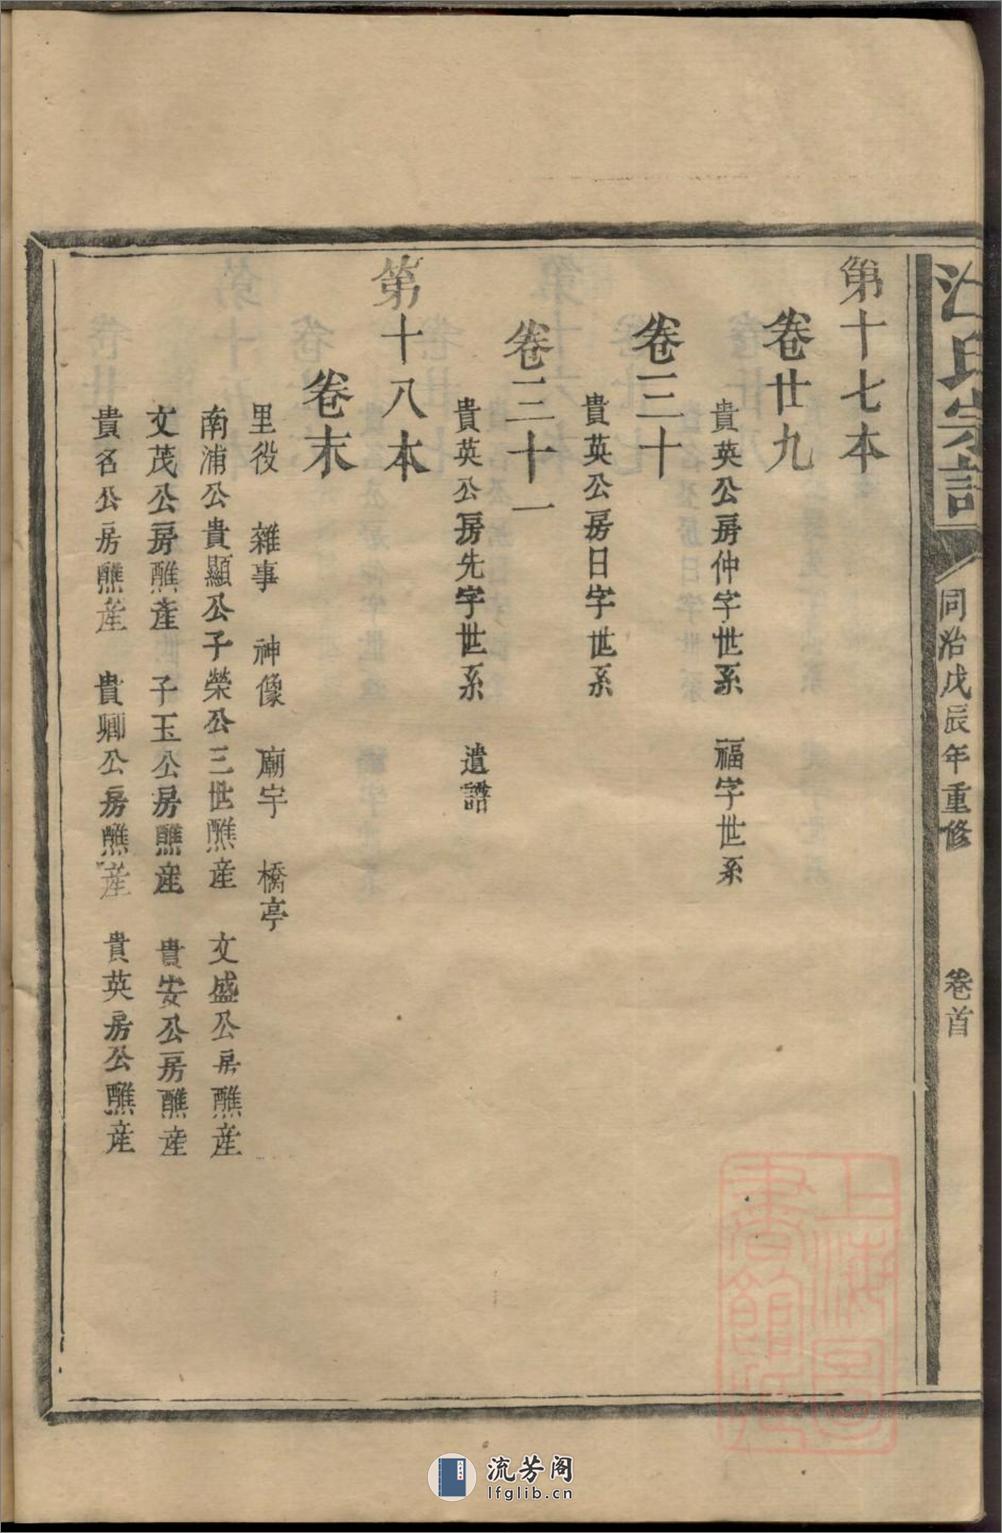 氏宗譜
同治戊辰年重修
卷首
第十七本
卷廿九
貴英公房仲字世系 福字世系
卷三十
貴英公房日字世系
卷三十一
貴英公房先字世系 遺譜
第十八本
卷末
里役 雜事 神像 廟宇 橋亭
南浦公貴顯公子榮公三世醮産 文盛公房醮産
文茂公房醮産 子玉公房醮産 貴安公房醮産
貴名公房醮産 貴卿公房醮産 貴英房公醮産
上海圖書館藏
流芳阁
lfglib.cn